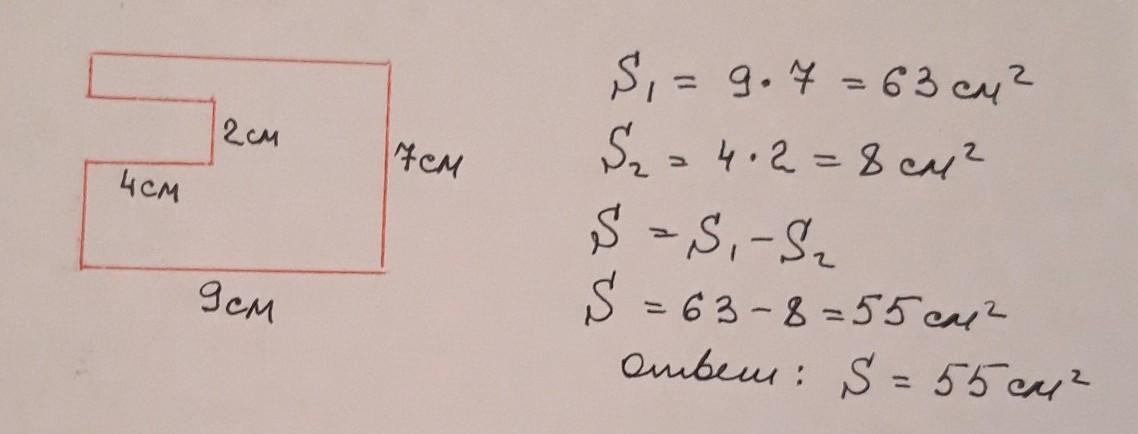 2см
7см
4см
9см
S₁ = 9·7 = 63 см²
S₂ = 4·2 = 8 см²
S = S₁ - S₂
S = 63 - 8 = 55 см²
ответ: S = 55 см²